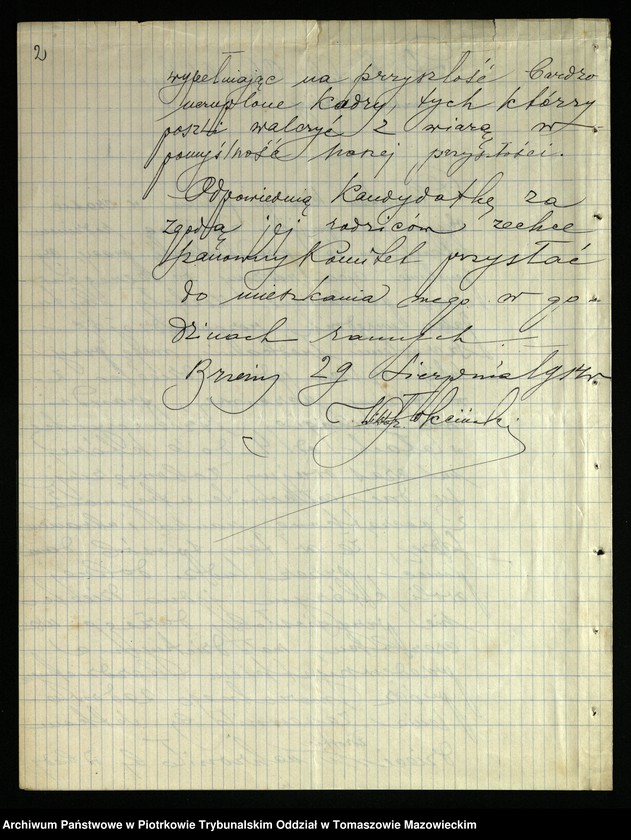 2
wypełniając na przyszłość bardzo
uczuplone kadry, tych którzy
poszli walczyć z wiarą w
pomyślność naszej przyszłości.
Odpowiednią kandydatkę za
zgodą jej rodziców zechce
Szanowny Komitet przysłać
do mieszkania mego w go-
dzinach rannych.
Brzeziny 29 Sierpnia 1914 r.
Archiwum Państwowe w Piotrkowie Trybunalskim Oddział w Tomaszowie Mazowieckim